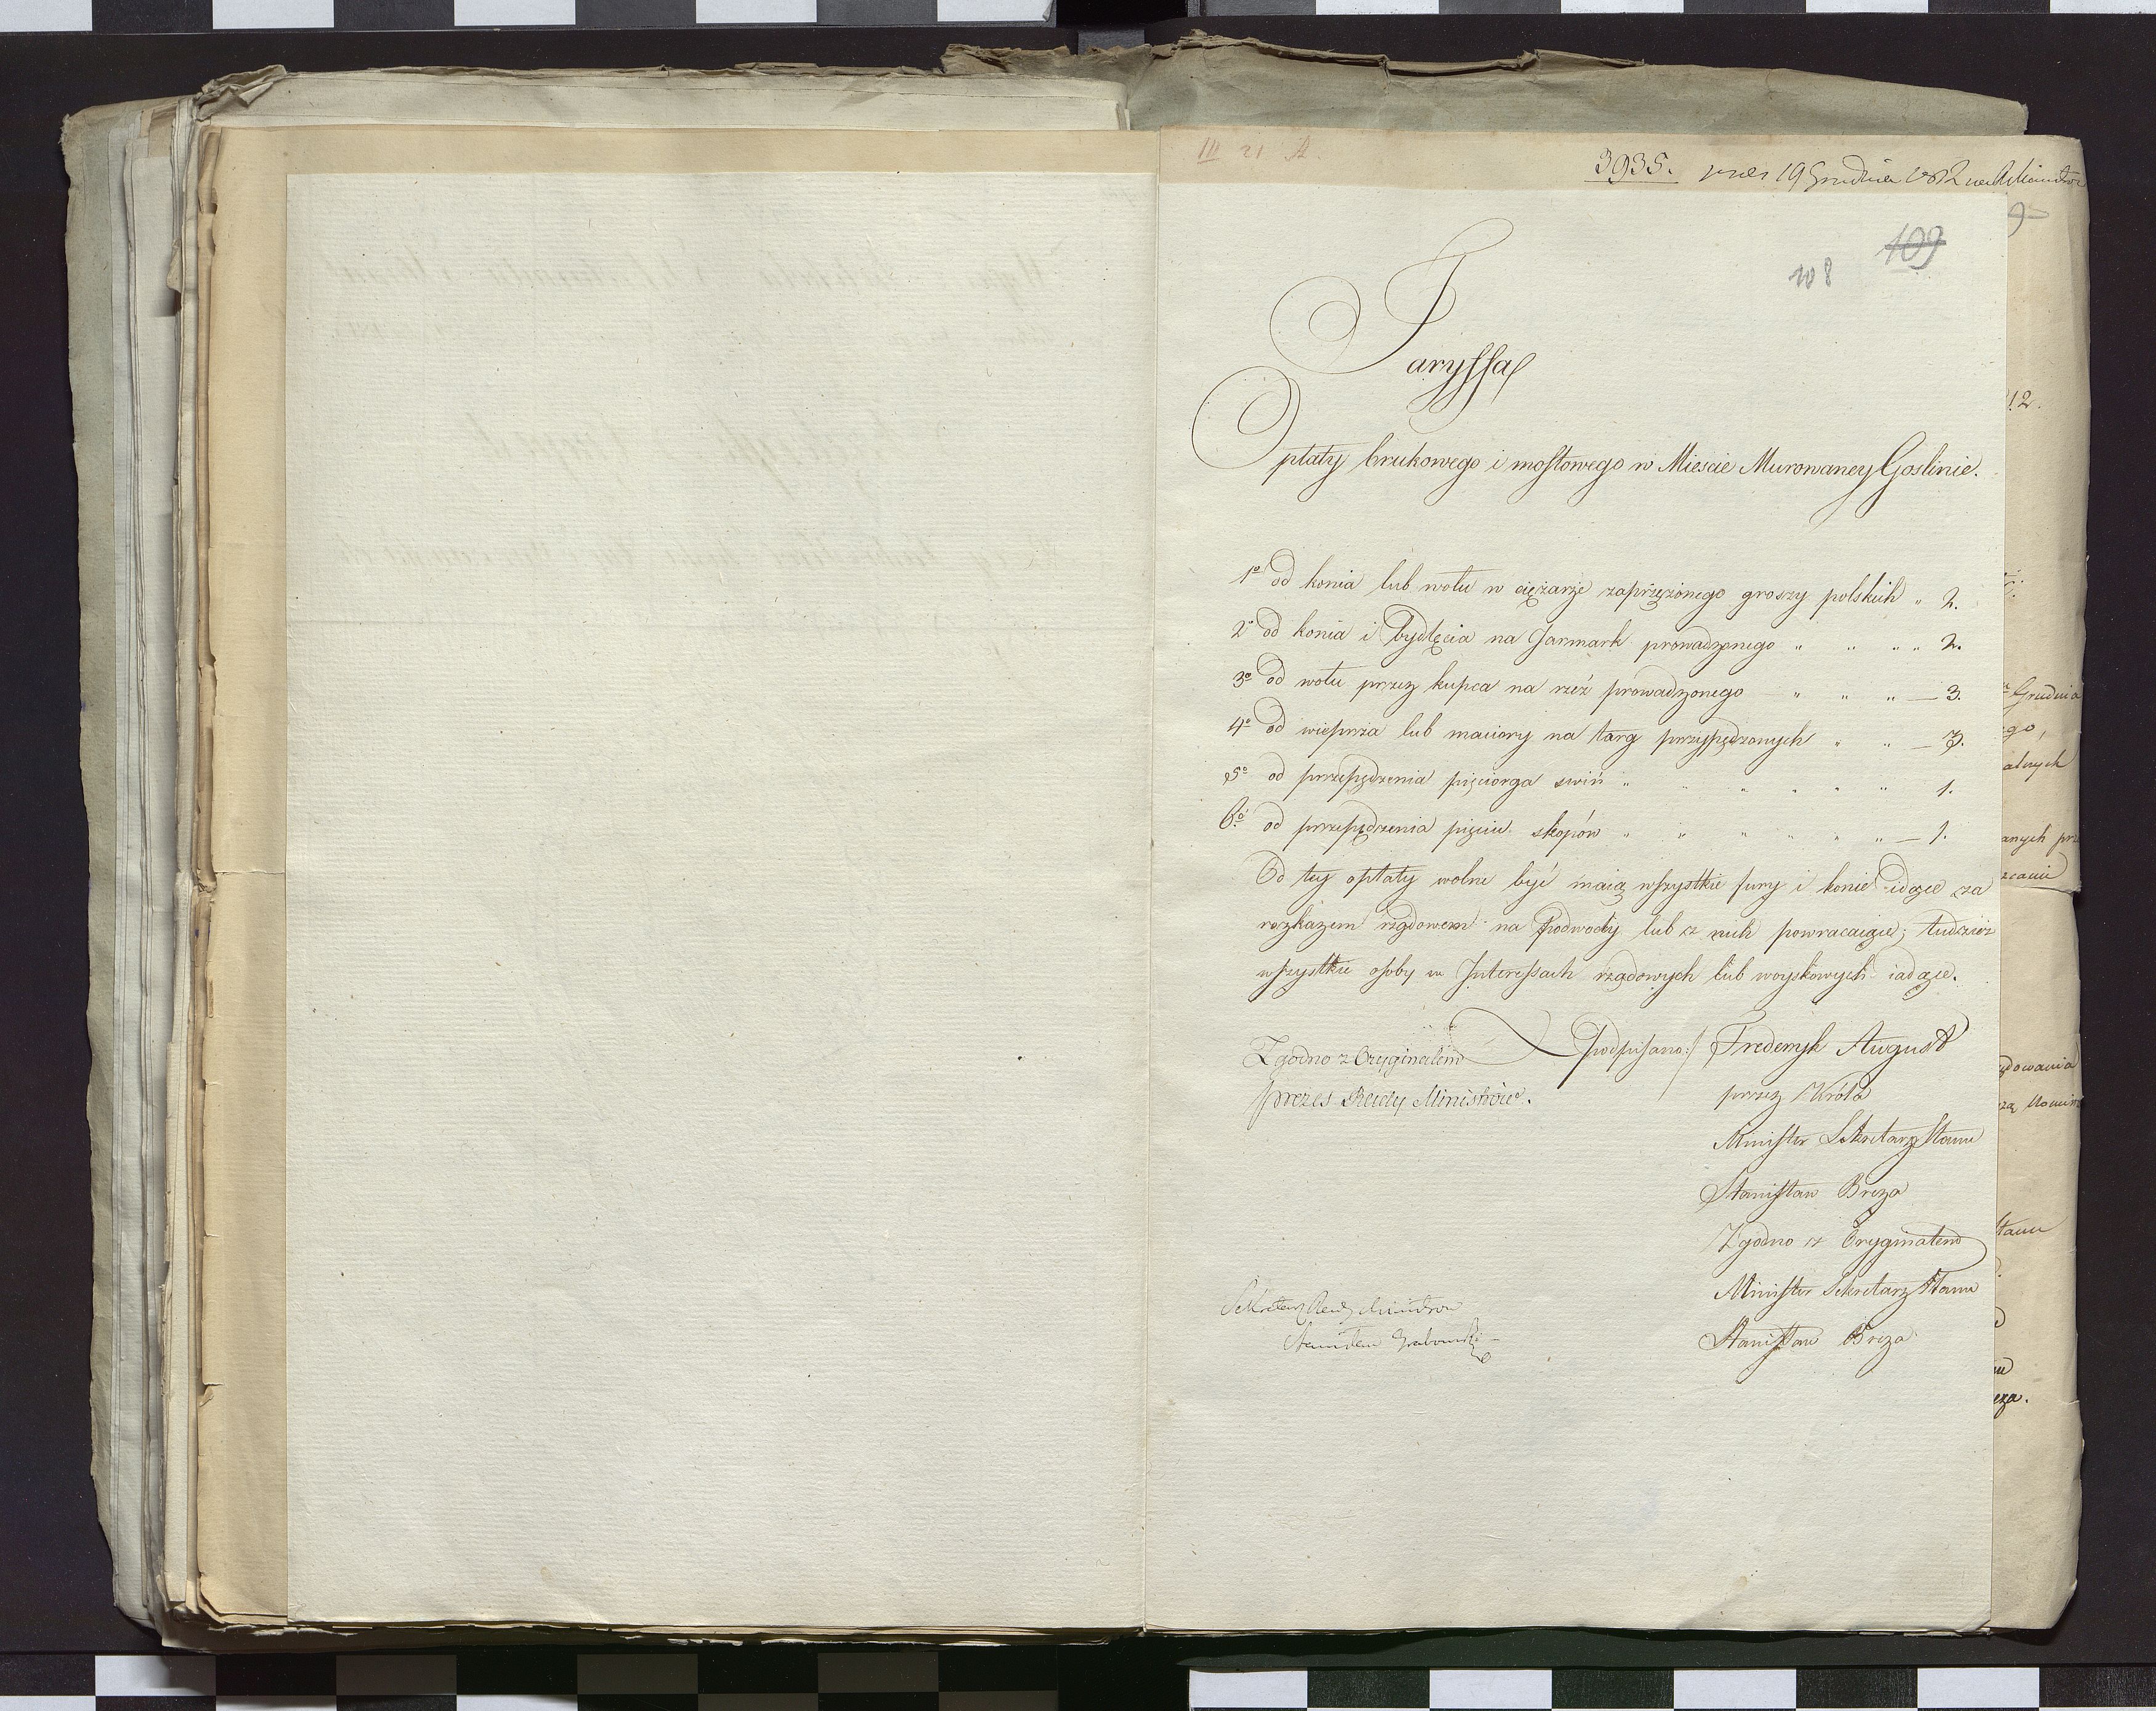 III 21 A.
3935. 19 Grudnia 1812
109
108
Taryffa
Opłaty brukowego i mostowego w Miescie Murowaney Goslinie.
1º od konia lub wołu w ciężarze zaprzężonego groszy polskich " 2.
2º od konia i bydlęcia na Jarmark prowadzonego " " " " 2.
3º od wołu przez kupca na rzeź prowadzonego " " " — 3.
4º od wieprza lub maciory na targ przypędzonych " " — 3.
5º od przepędzenia pięciorga swiń " " " " " " 1.
6º od przepędzenia pięciu skopów " " " " " " — 1.
Od tey opłaty wolne być maią wszystkie fury i konie idące za
rozkazem rządowem na Podwody lub z nich powracaiące; tudzież
wszystkie osoby w Interessach rządowych lub woyskowych iadące.
podpisano:/ Frederyk August
przez Króla
Minister Sekretarz Stanu
Stanisław Breza
Zgodno z Oryginałem
Minister Sekretarz Stanu
Stanisław Breza
Zgodno z Oryginałem
Prezes Rady Ministrów.
Sekretarz Rady Ministrow
Stanisław Grabowski
12.
Grudnia
ego,
alnych
anych
dowania
Stanu
eza.